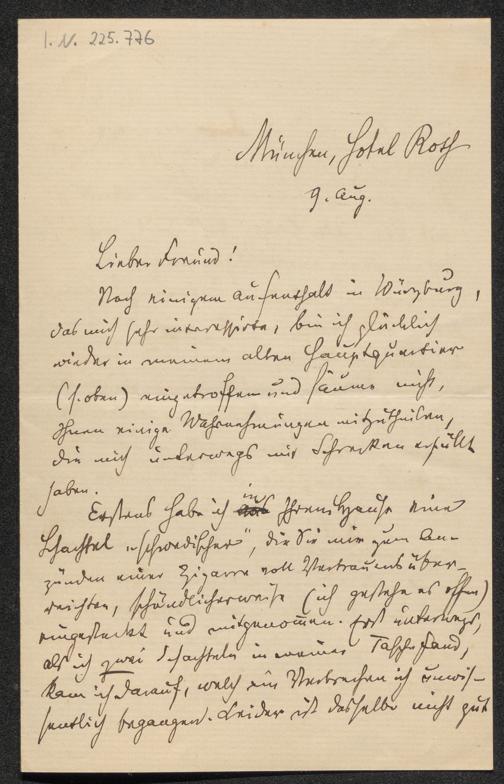 I. N. 225.776
München, Hotel Roth
9. Aug.
Lieber Freund!
Nach einigem Aufenthalt in Würzburg,
das mich sehr interessirte, bin ich glücklich
wieder in meinem alten Hauptquartier
(s. oben) eingetroffen und säume nicht,
Ihnen einige Wahrnehmungen mitzutheilen,
die mich unterwegs mit Schrecken erfüllt
haben.
Erstens habe ich in Ihrem Hause eine
Schachtel „schwedischer“, die Sie mir zum An-
zünden einer Zigarre voll Vertrauens über-
reichten, schändlicherweise (ich gestehe es offen)
eingesteckt und mitgenommen. Erst unterwegs,
als ich zwei Schachteln in meiner Tasche fand,
kam ich darauf, welch ein Verbrechen ich unwis-
sentlich begangen. Leider ist dasselbe nicht gut